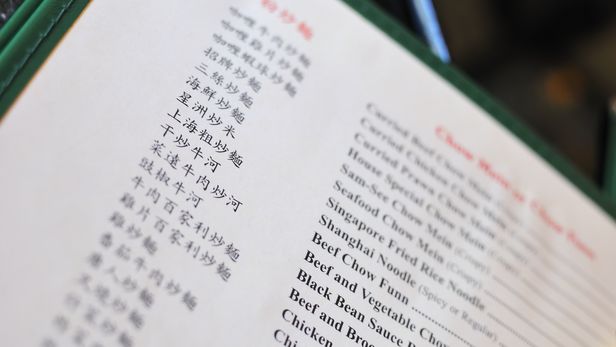 炒麵
咖喱牛肉炒麵
咖喱雞片炒麵
咖喱蝦球炒麵
招牌炒麵
三絲炒麵
海鮮炒麵
星洲炒米
上海粗炒麵
干炒牛河
菜遠牛肉炒河
豉椒牛河
牛肉百家利炒麵
雞片百家利炒麵
雞炒麵
番茄牛肉炒麵
Chow Mein or Chow Funn
Curried Beef Chow Mein
Curried Chicken Chow Mein
Curried Prawn Chow Mein
House Special Chow Mein (Crispy)
Sam-See Chow Mein (Crispy)
Seafood Chow Mein (Crispy)
Singapore Fried Rice Noodle
Shanghai Noodle (Spicy or Regular)
Beef Chow Funn
Beef and Vegetable Chow
Black Bean Sauce B
Beef and Broc
Chicken
Chi